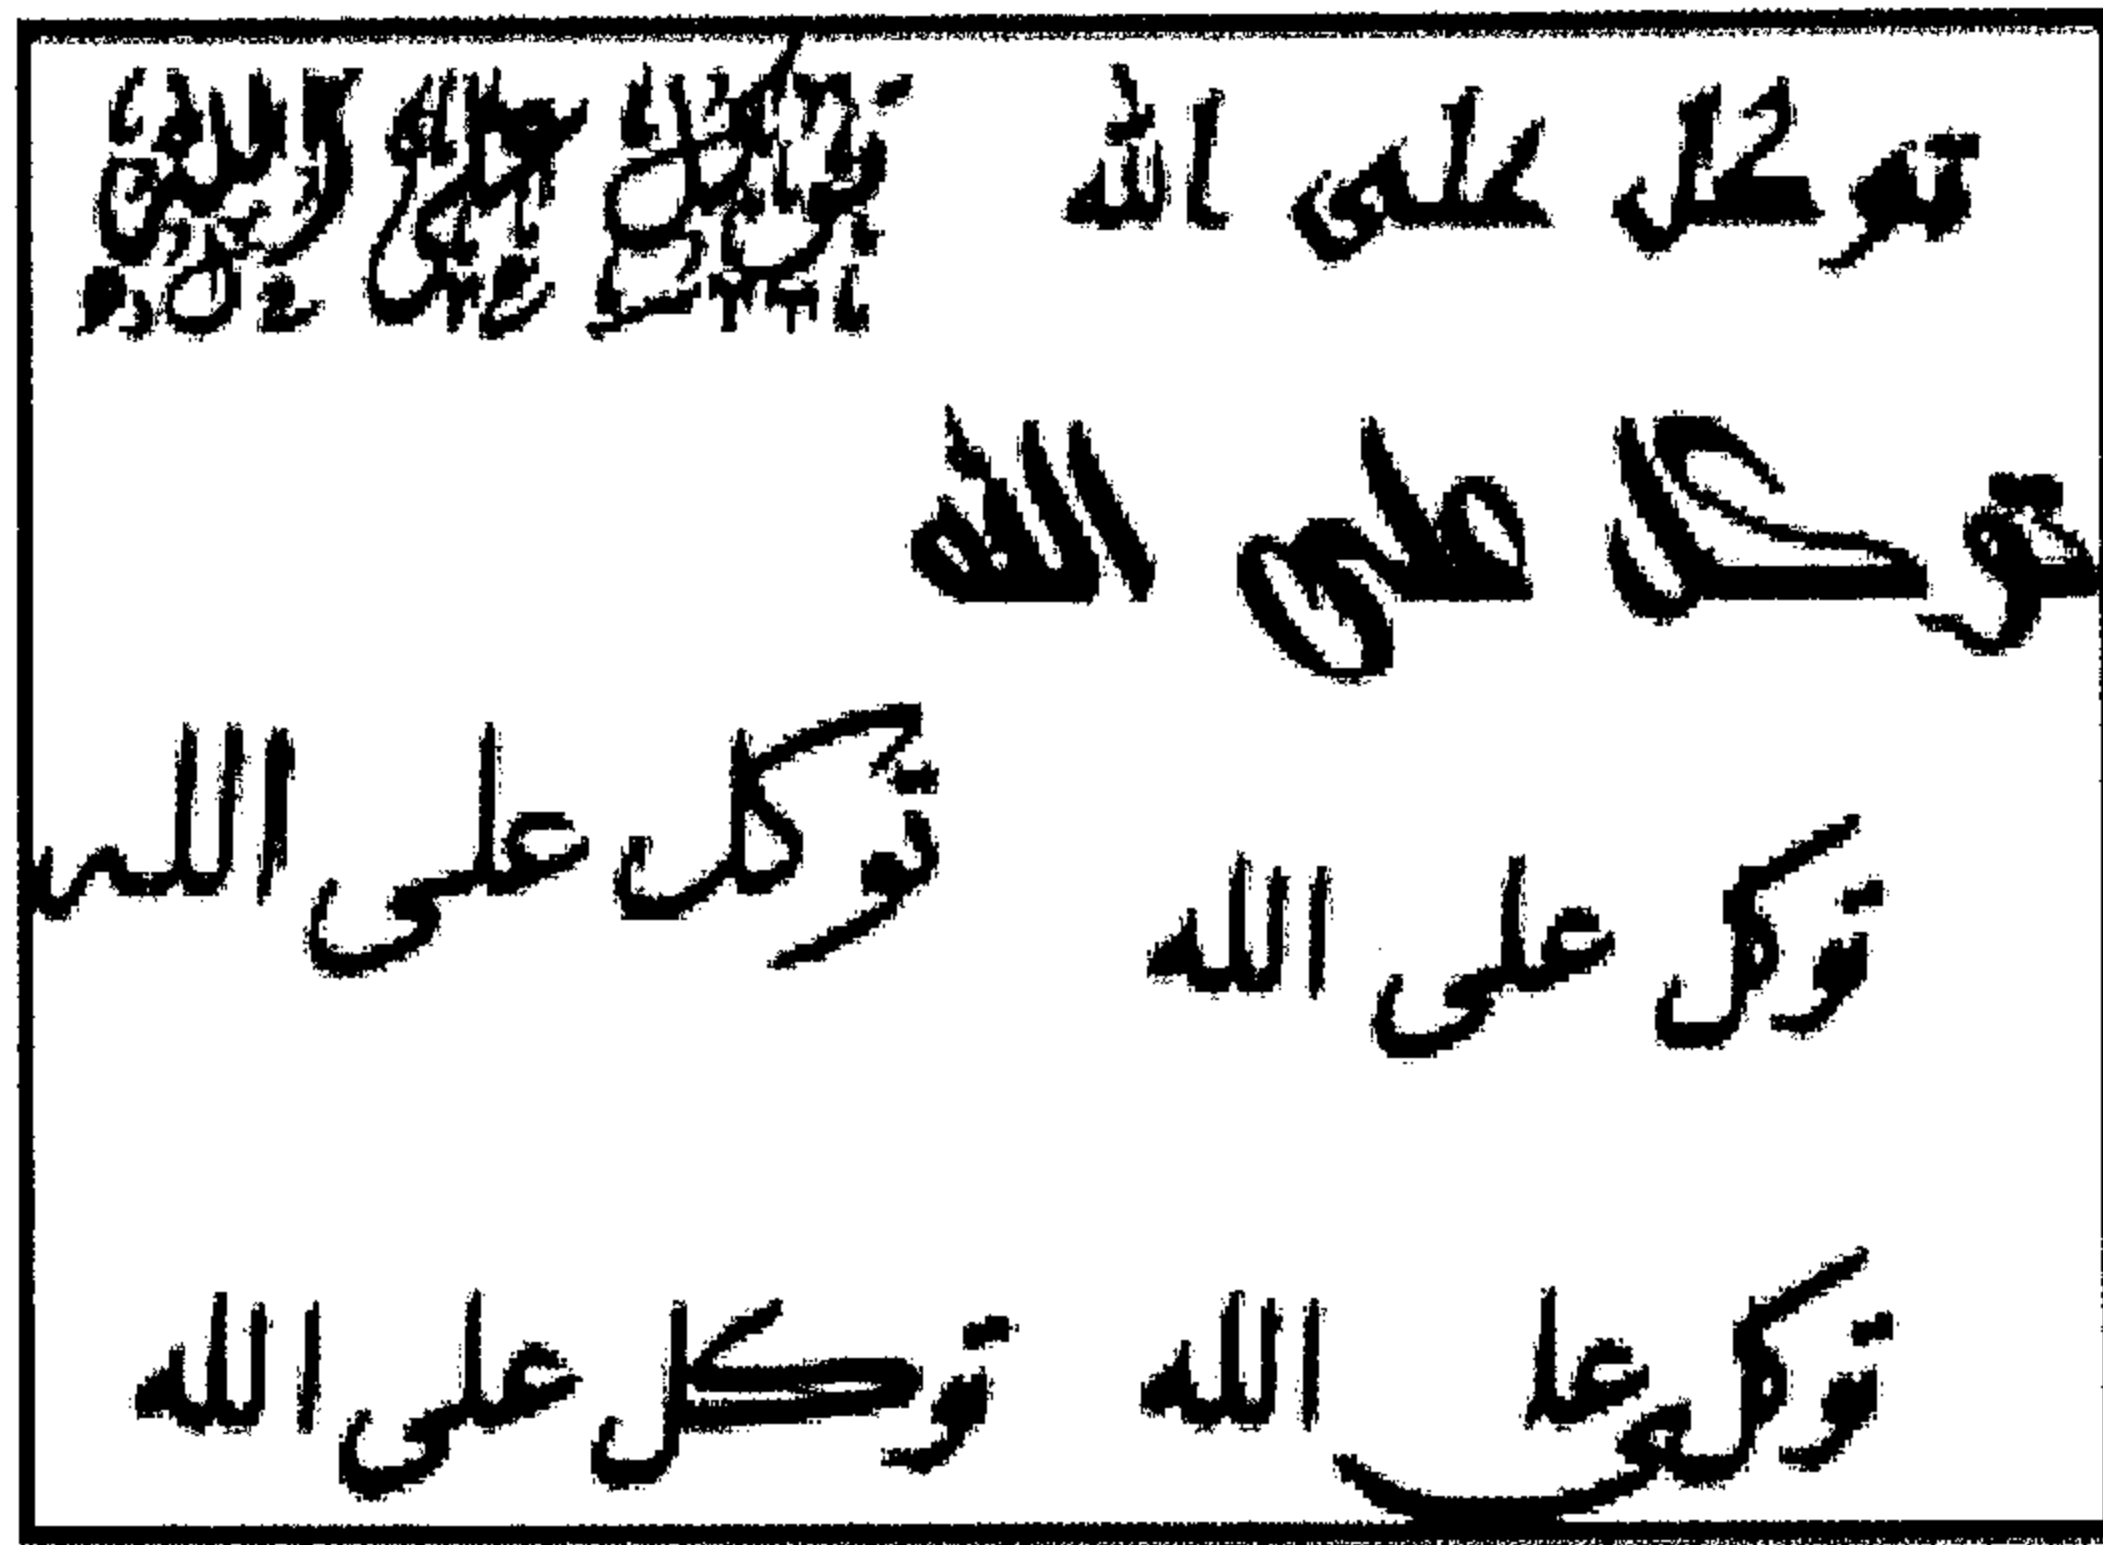 توكل على الله توكل على الله
توكل على الله
توكل على الله توكل على الله
توكل على الله توكل على الله